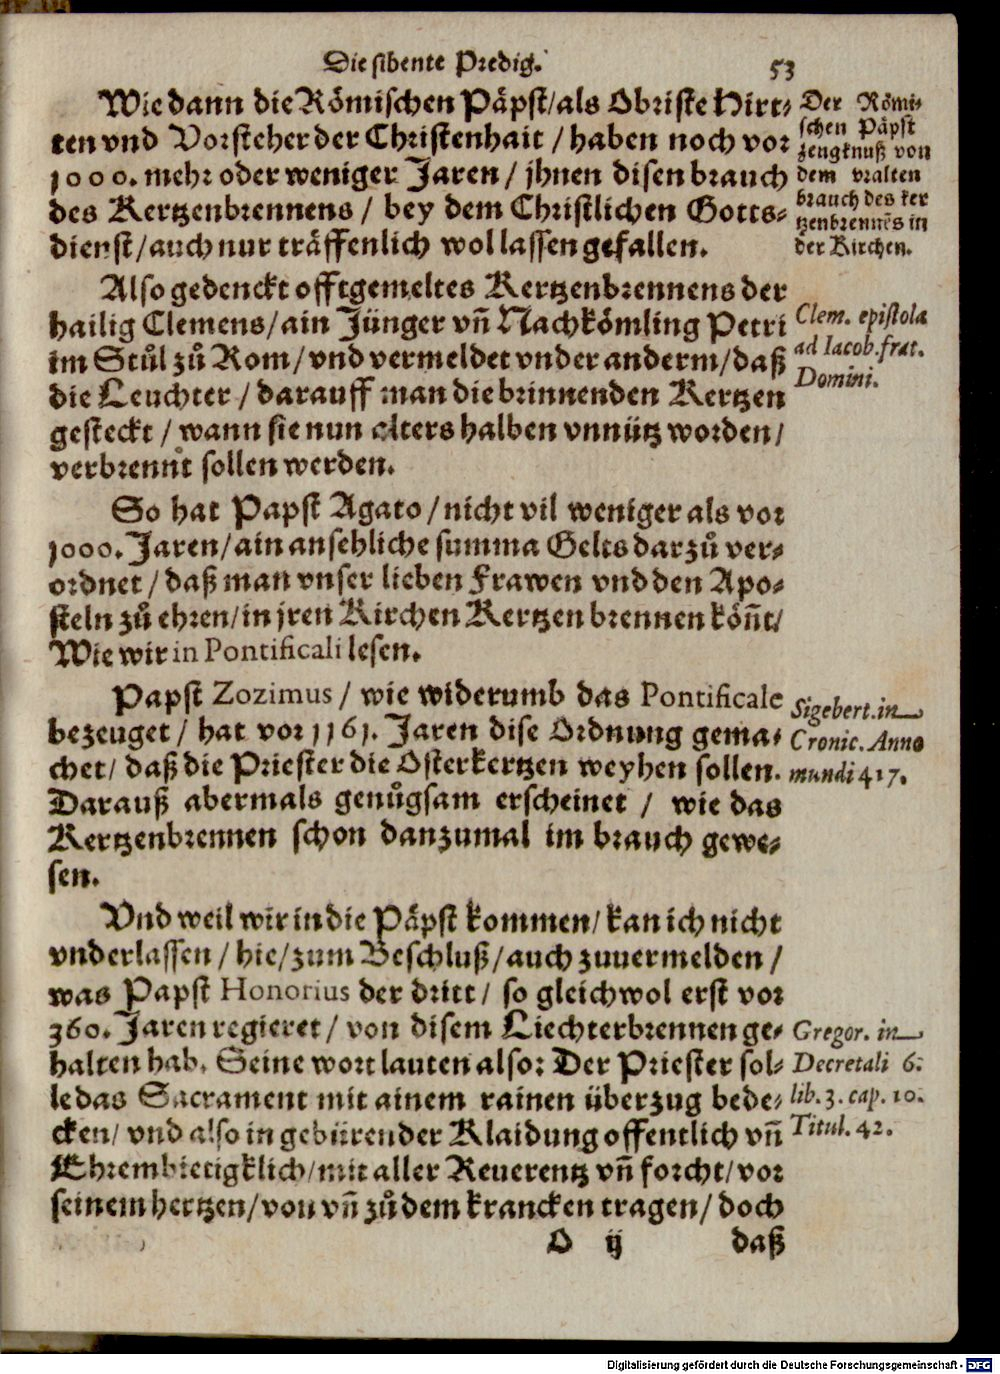 Die sibente Predig.
53
Wie dann die Römischen Päpst/als Obriste Hirt-
ten vnd Vorsteher der Christenhait / haben noch vor
1000. mehr oder weniger Jaren / jhnen disen brauch
des Kertzenbrennens / bey dem Christlichen Gotts-
dienst/auch nur träffenlich wol lassen gefallen.
Der Römi-
schen Päpst
zeugknuß von
dem vralten
brauch des ker
tzenbrennẽs in
der Kirchen.
Also gedenckt offtgemeltes Kertzenbrennens der
hailig Clemens/ain Jünger vñ Nachkömling Petri
im Stůl zů Rom/vnd vermeldet vnder anderm/daß
die Leuchter / darauff man die brinnenden Kertzen
gesteckt / wann sie nun alters halben vnnütz worden/
verbrennt sollen werden.
Clem. epistola
ad Iacob. frat.
Domini.
So hat Papst Agato / nicht vil weniger als vor
1000. Jaren/ain ansehliche summa Gelts darzů ver-
ordnet / daß man vnser lieben Frawen vnd den Apo-
steln zů ehren/in jren Kirchen Kertzen brennen köñt/
Wie wir in Pontificali lesen.
Papst Zozimus / wie widerumb das Pontificale
bezeuget / hat vor 1161. Jaren dise Ordnung gema-
chet/ daß die Priester die Osterkertzen weyhen sollen.
Darauß abermals genůgsam erscheinet / wie das
Kertzenbrennen schon danzumal im brauch gewe-
sen.
Sigebert. in
Cronic. Anno
mundi 417.
Vnd weil wir in die Päpst kommen/ kan ich nicht
vnderlassen / hie/zum Beschluß/auch zuuermelden /
was Papst Honorius der dritt / so gleichwol erst vor
360. Jaren regieret / von disem Liechterbrennen ge-
halten hab. Seine wort lauten also: Der Priester sol-
le das Sacrament mit ainem rainen überzug bede-
cken/ vnd also in gebürender Klaidung offentlich vñ
Ehrembietigklich/mit aller Reuerentz vñ forcht/vor
seinem hertzen/von vñ zů dem krancken tragen/ doch
Gregor. in
Decretali 6.
lib. 3. cap. 10.
Titul. 42.
O ij
daß
Digitalisierung gefördert durch die Deutsche Forschungsgemeinschaft - DFG